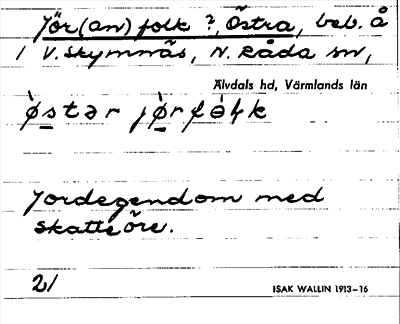 Jör(an)folk ?, Östra, beb. å
1 V. Skymnäs, N. Råda sn,
Älvdals hd, Värmlands län
Jordegendom med
skatteöre.
21
ISAK WALLIN 1913–16